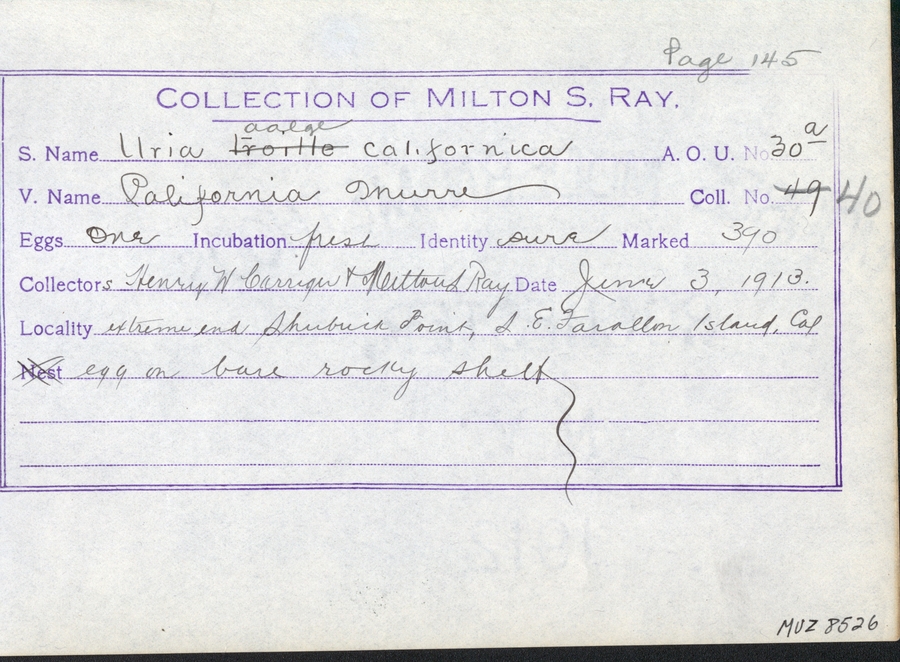 Page 145
COLLECTION OF MILTON S. RAY.
aalge
S. Name Uria troille californica A. O. U. No. 30a
V. Name California Murre Coll. No. 49 40
Eggs One Incubation fresh Identity sure Marked 390
Collectors Henry W Carriger & Milton S Ray Date June 3, 1913.
Locality extreme end Shubrick Point, S. E. Farallon Island, Cal
Nest egg on bare rocky shelf
MVZ 8526